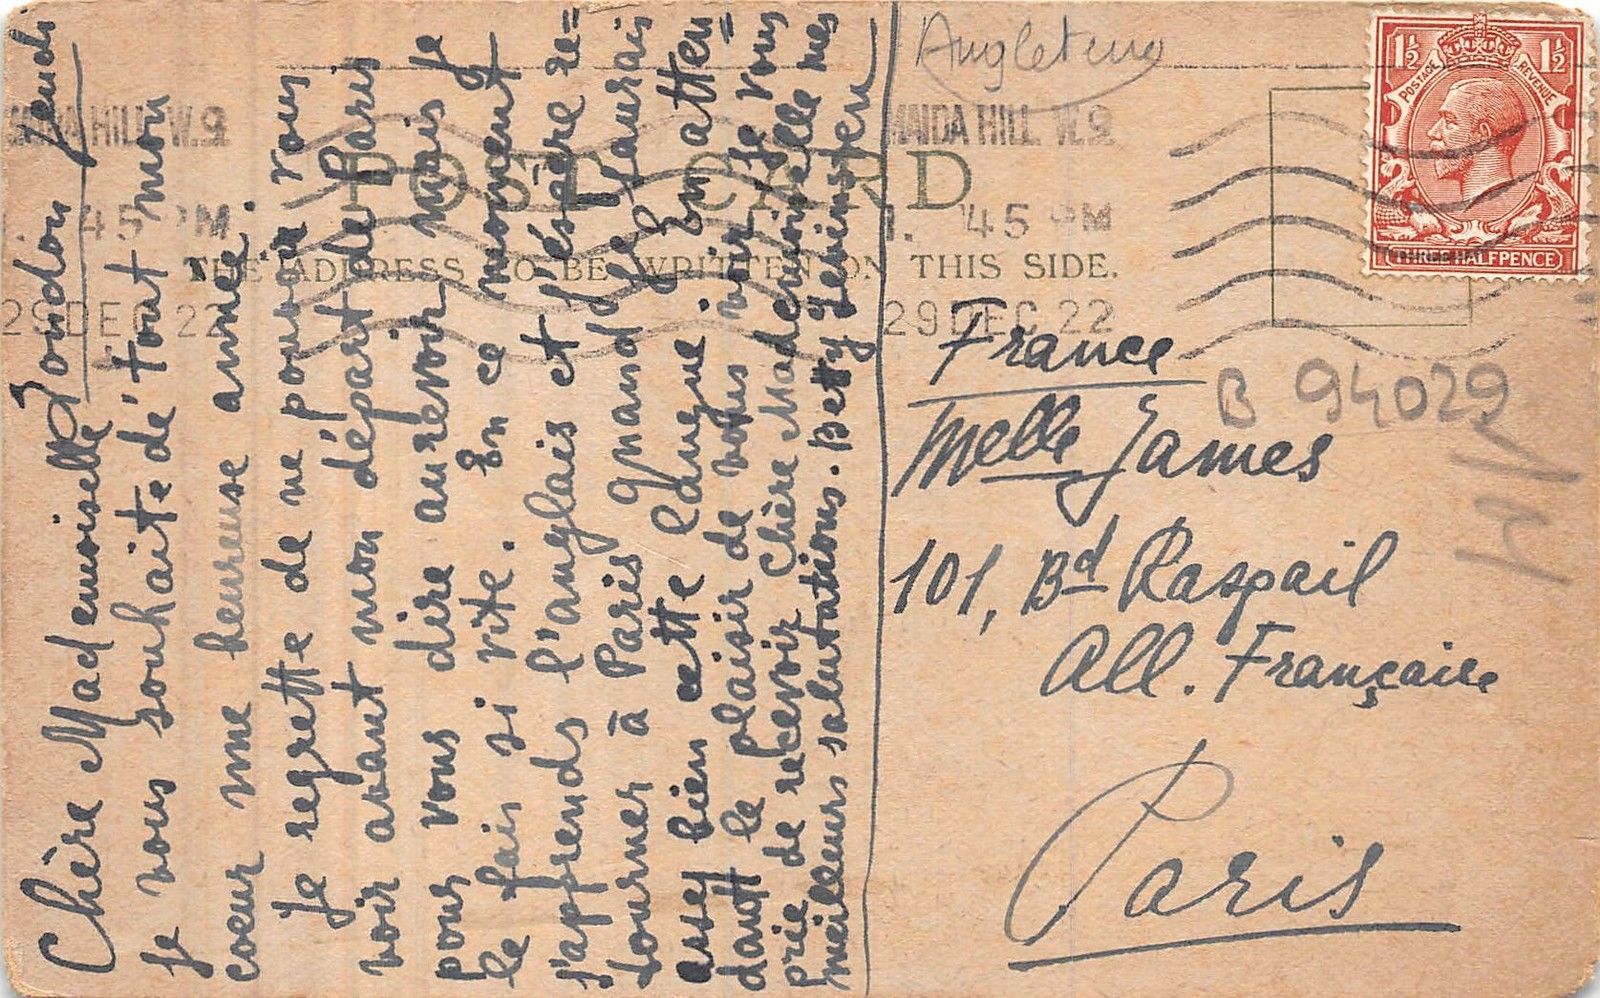 London Jeudi
Chère Mademoiselle
je vous souhaite de tout mon
coeur une heureuse année.
Je regrette de ne pouvoir vous
voir avant mon départ de Paris
pour vous dire aurevoir, mais je
le fais si vite. En ce moment
j'apprends l'anglais et j'éspère re=
tourner à Paris quand je saurais
assez bien cette langue. En atten=
dant le plaisir de vous voir, je vous
prie de recevoir Chère Mademoiselle mes
meilleurs salutations. Betty
POST CARD
THE ADDRESS TO BE WRITTEN ON THIS SIDE.
MAIDA HILL. W.9.
45 PM
29 DEC 22
MAIDA HILL. W.9.
1. 45 PM
29 DEC 22
Angleterre
1½ 1½
POSTAGE REVENUE
THREE HALFPENCE
France
B 94029
Melle James
101, Bd Raspail
All. Française
Paris